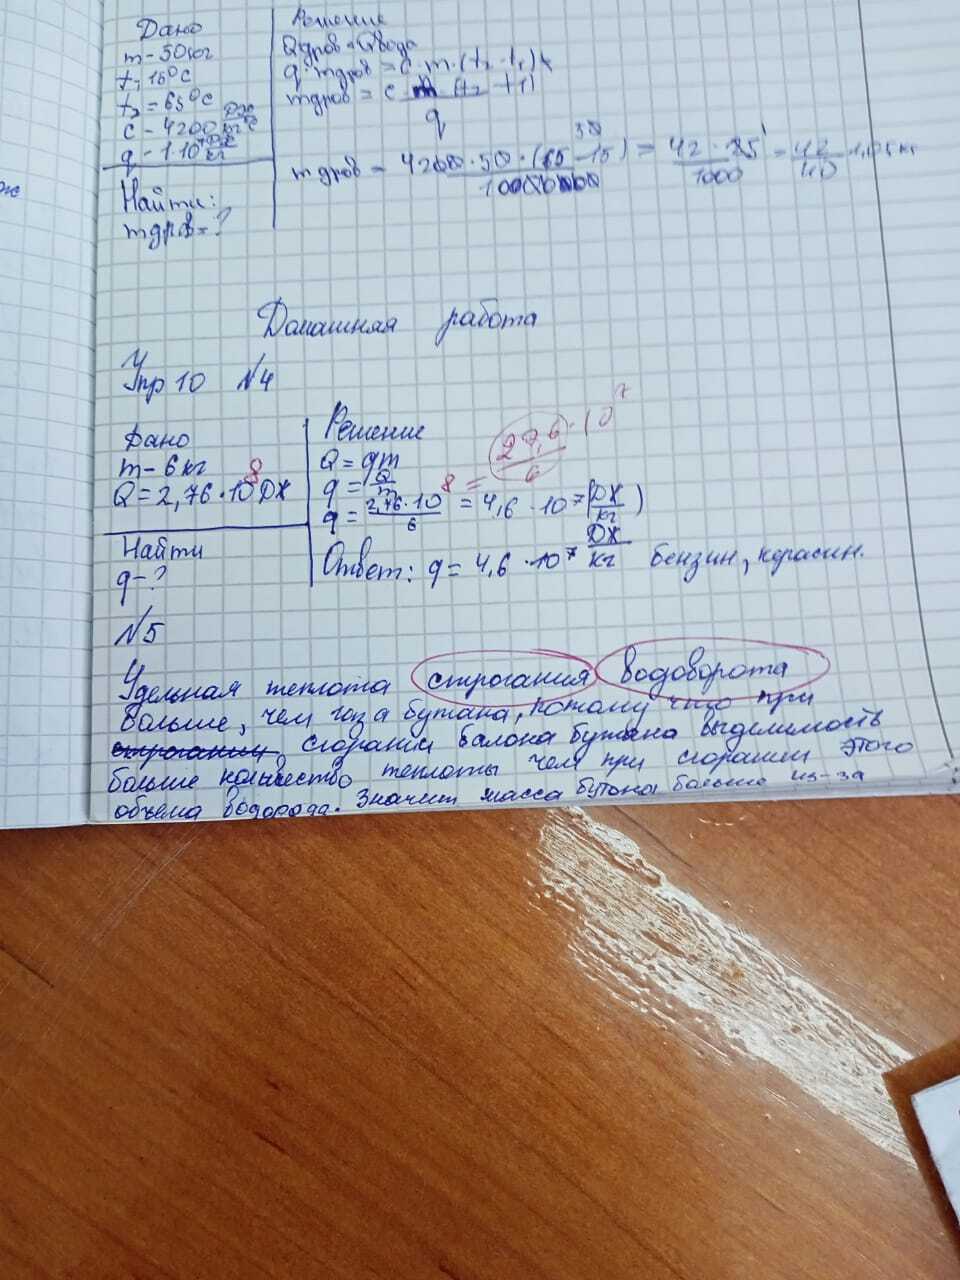 Дано
m - 50 кг
t₁ 15°C
t₂ = 65°C
c - 4200 Дж/кг°C
q - 1·10⁷ Дж/кг
Найти:
m дров = ?
Решение
Qдров = Qвода
q·mдров = c·m·(t₂ - t₁)
mдров = c m (t₂ - t₁) / q
m дров = 4200·50·(65-15) / 10000000 = 42·25 / 1000 = 42 / 40 = 1,05 кг
50
Домашняя работа
Упр 10 №4
Дано
m - 6 кг
Q = 2,76·10⁸ Дж
Найти
q - ?
Решение
Q = qm
q = Q/m
q = 2,76·10⁸ / 6 = 4,6·10⁷ (Дж/кг)
= 27,6/6 · 10⁷
Ответ: q = 4,6·10⁷ Дж/кг бензин, керасин.
№5
Удельная теплота строгания водоворота
больше, чем газа бутана, потому что при
сгорании балона бутана выделимость
больше количество теплоты чем при сгорании этого
объема водорода. Значит масса бутона больше из-за